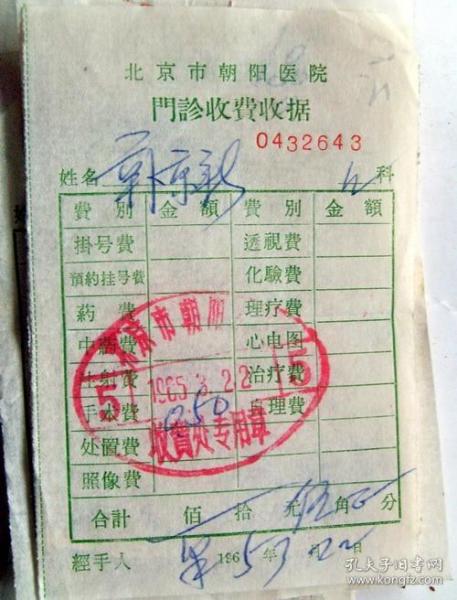 北京市朝阳医院
門診收費收据
0432643
姓名 京 科
費别 金額 費别 金額
掛号費 透視費
預約挂号費 化驗費
葯費 理疗費
中 費 心电图
射費 治疗費
手术費 理費
处置費
照像費
北京市朝阳
5 1965.3.22 5
0.50
收費处专用章
合計 佰 拾 元 伍角 分
經手人 1965年3月22日
孔夫子旧书网
www.kongfz.com